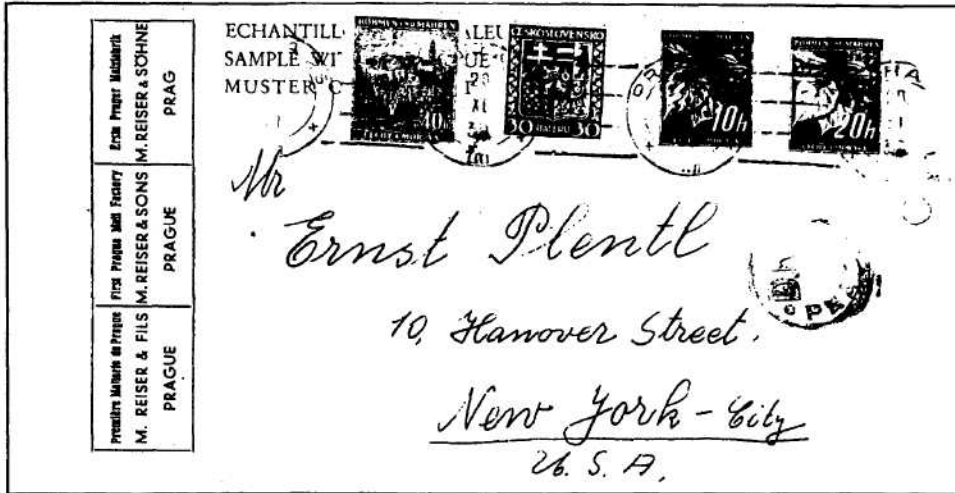 Première Malterie de Prague
M. REISER & FILS
PRAGUE
First Prague Malt Factory
M. REISER & SONS
PRAGUE
Erste Prager Malzfabrik
M. REISER & SÖHNE
PRAG
ECHANTILL
SAMPLE WIT
MUSTER
BÖHMEN UND MÄHREN
40h
ČESKOSLOVENSKO
30 HALÉŘŮ 30
10h
20h
Mr
Ernst Plentl
10, Hanover Street.
New York-City
U. S. A.